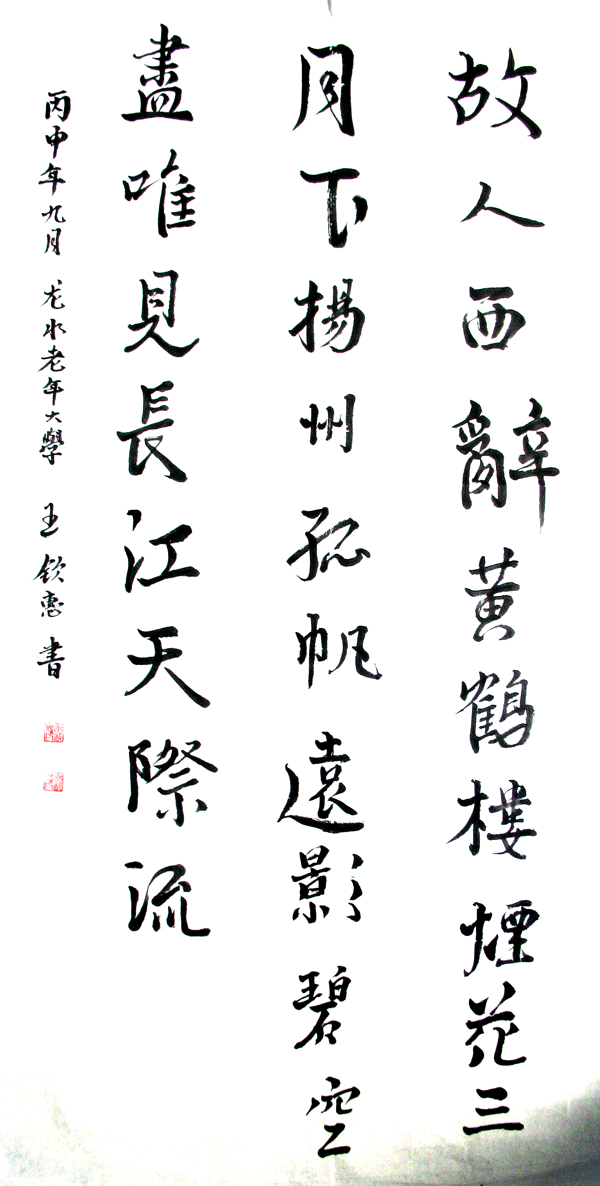 故人西辭黃鶴樓煙花三
月下揚州孤帆遠影碧空
盡唯見長江天際流
丙申年九月 龙水老年大學 王钦惠書